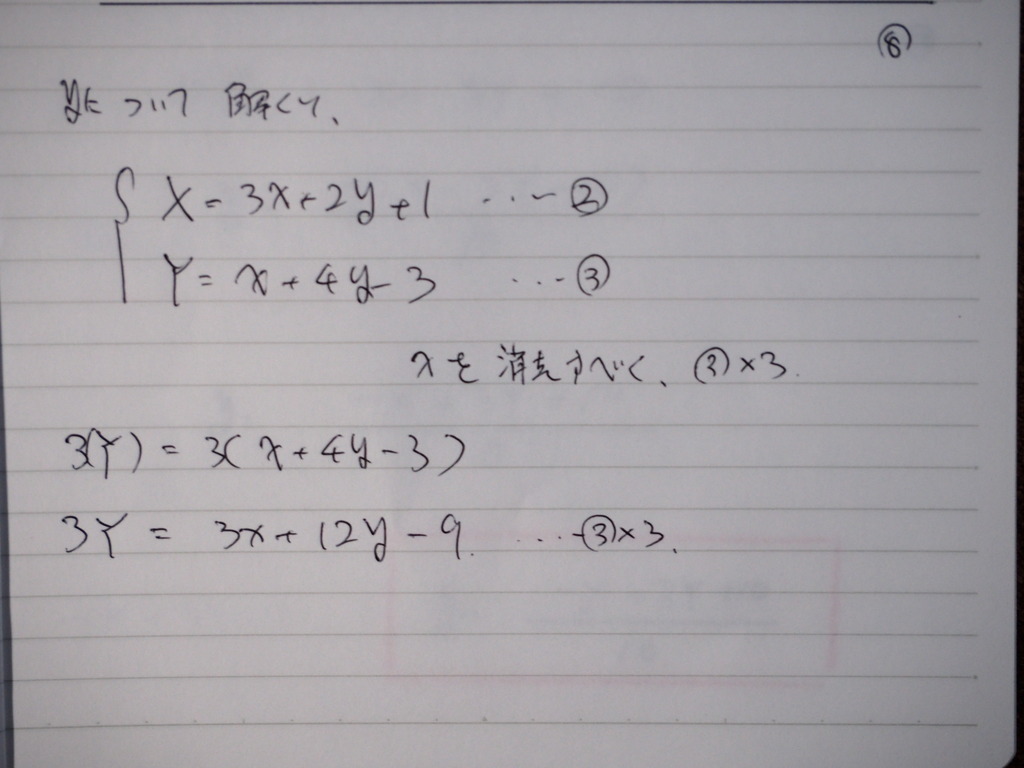 ⑧
yについて解くと、
X = 3x + 2y + 1 ... ②
Y = x + 4y - 3 ... ③
xを消去すべく、③×3.
3(Y) = 3(x + 4y - 3)
3Y = 3x + 12y - 9. ... ③×3.